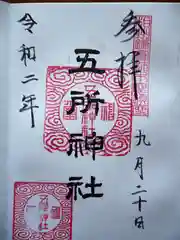 参拝
九月二十日
五所神社
令和二年